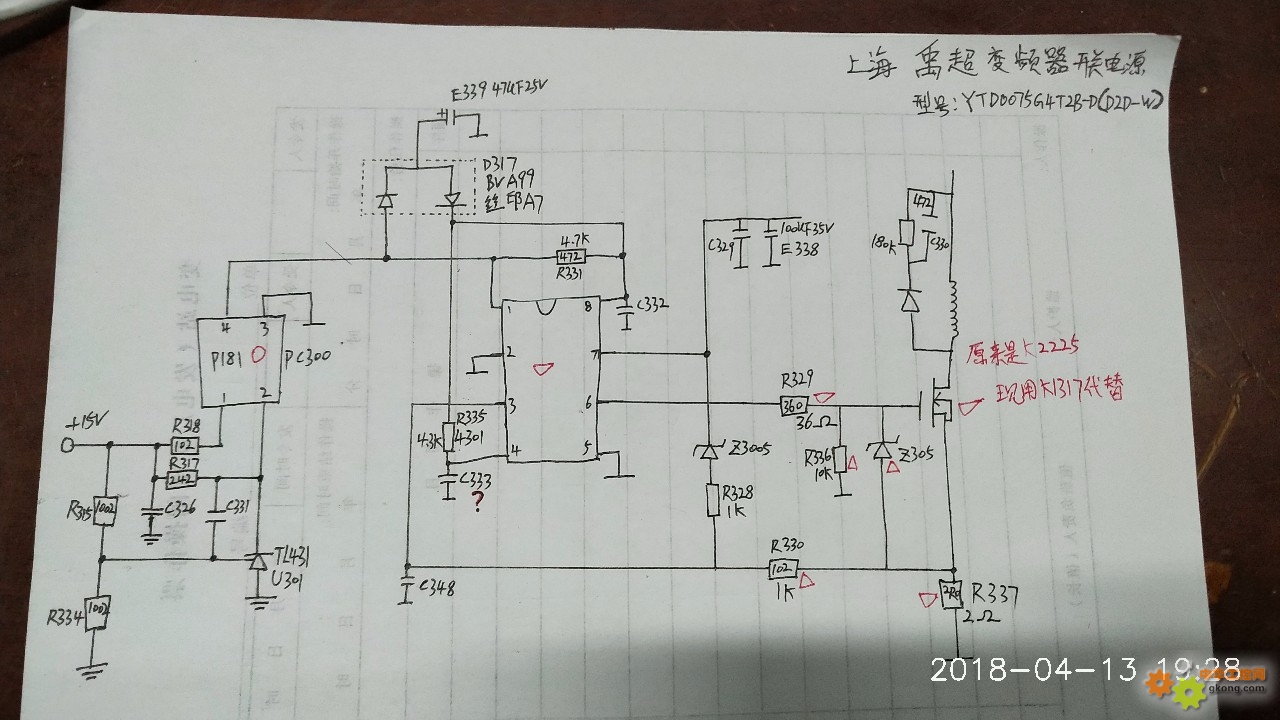 上海 禹超变频器开联电源
型号:YTD0075G4T2B-D(D2D-W)
E339 47UF25V
D317
BVA99
丝印A7
4.7K
472
R331
C332
1 8
2 7
3 6
4 5
C329
100UF35V
E338
472
180K
C330
原来是K2225
现用K1317代替
4 3
P181
PC300
1 2
+15V
R318
102
R317
242
R315
1002
C326
C331
TL431
U301
R334
1002
R335
4.3K
4301
C333
?
C348
Z3005
R328
1K
R329
360
36Ω
R336
10K
Z305
R330
102
1K
R337
2R0
2Ω
2018-04-13 19:28
gkong.com